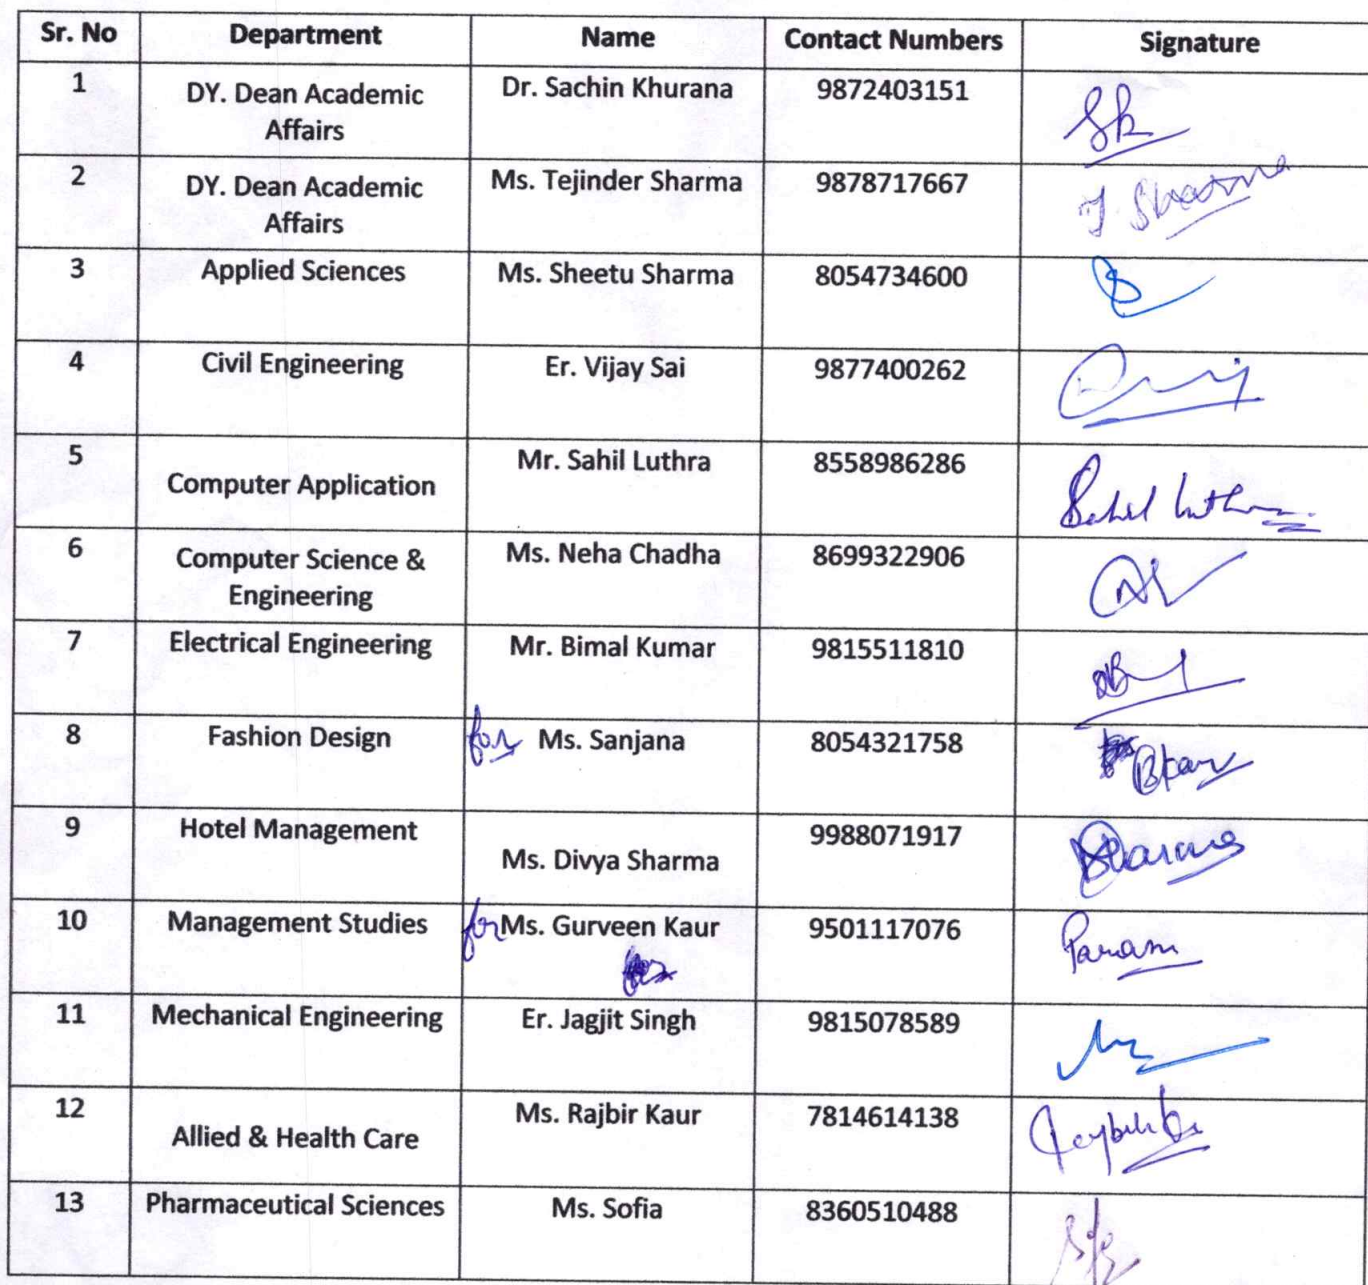 Sr. No Department Name Contact Numbers Signature
1 DY. Dean Academic Affairs Dr. Sachin Khurana 9872403151 SK
2 DY. Dean Academic Affairs Ms. Tejinder Sharma 9878717667 T Sharma
3 Applied Sciences Ms. Sheetu Sharma 8054734600
4 Civil Engineering Er. Vijay Sai 9877400262
5 Computer Application Mr. Sahil Luthra 8558986286 Sahil Luthra
6 Computer Science & Engineering Ms. Neha Chadha 8699322906
7 Electrical Engineering Mr. Bimal Kumar 9815511810
8 Fashion Design for Ms. Sanjana 8054321758
9 Hotel Management Ms. Divya Sharma 9988071917 Sharma
10 Management Studies for Ms. Gurveen Kaur 9501117076 Param
11 Mechanical Engineering Er. Jagjit Singh 9815078589
12 Allied & Health Care Ms. Rajbir Kaur 7814614138
13 Pharmaceutical Sciences Ms. Sofia 8360510488